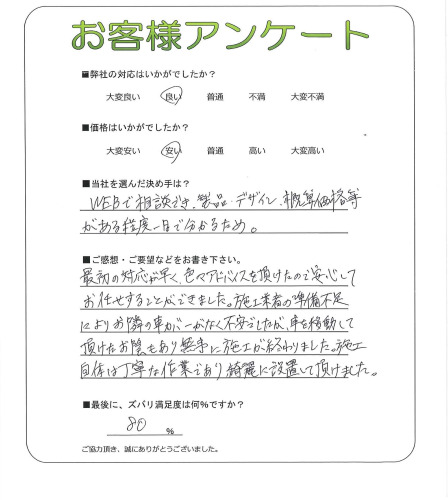 お客様アンケート
■弊社の対応はいかがでしたか？
大変良い 良い 普通 不満 大変不満
■価格はいかがでしたか？
大変安い 安い 普通 高い 大変高い
■当社を選んだ決め手は？
WEBで相談でき、製品・デザイン、概算価格等
がある程度一目で分かるため。
■ご感想・ご要望などをお書き下さい。
最初の対応が早く、色々アドバイスを頂けたので安心して
お任せすることができました。施工業者の準備不足
によりお隣の車が なく不安でしたが、車を移動して
頂けたお陰もあり無事に施工が終わりました。施工
自体は丁寧な作業であり綺麗に設置して頂けました。
■最後に、ズバリ満足度は何%ですか？
80 %
ご協力頂き、誠にありがとうございました。